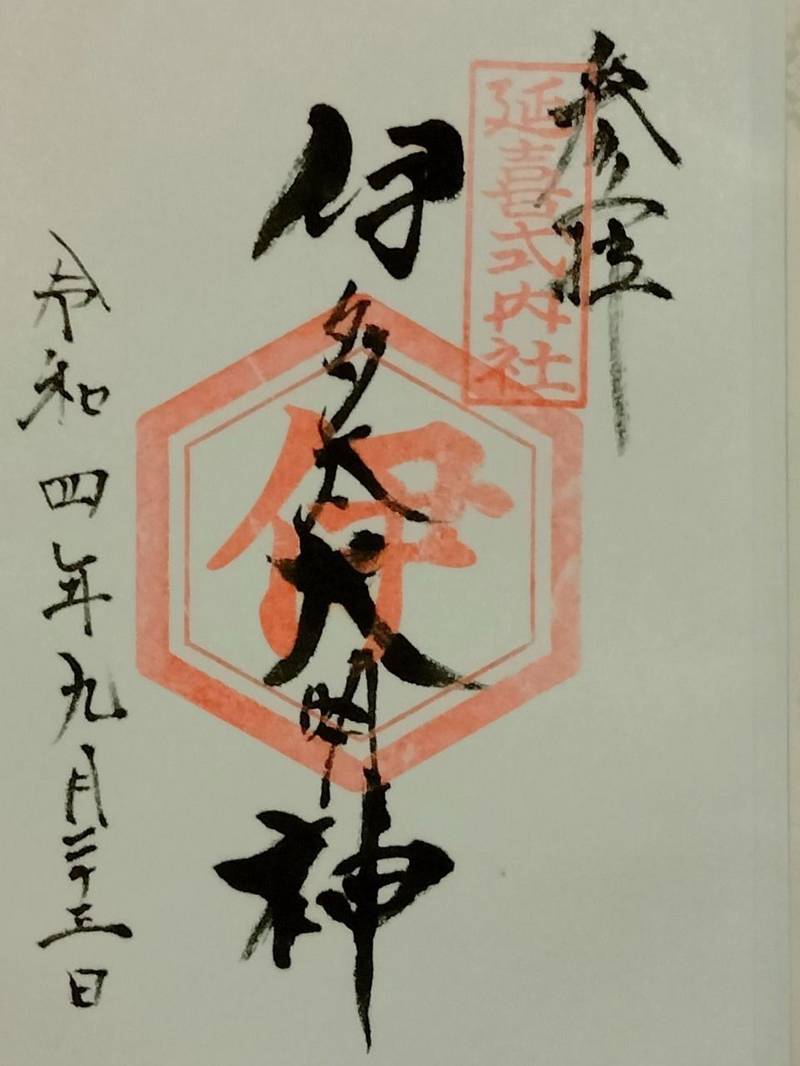 参拝
延喜式内社
伊多太大明神
伊
令和四年九月二十三日